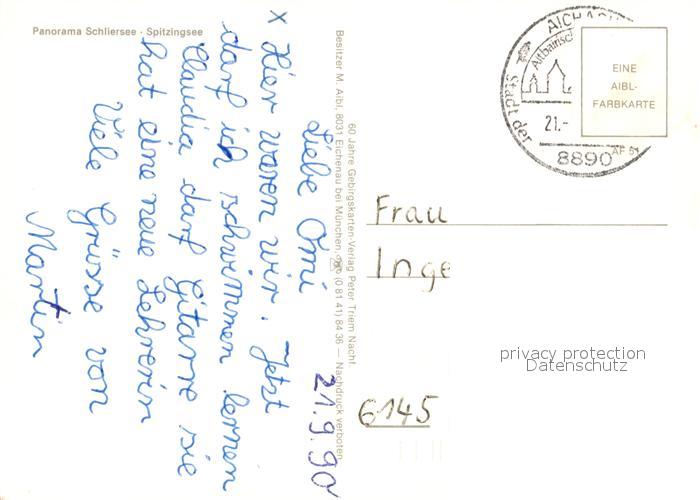 Panorama Schliersee · Spitzingsee
Liebe Omi 21.9.90
x Hier waren wir. Jetzt
darf ich schwimmen lernen
Claudia darf Gitarre sie
hat eine neue Lehrerin
Viele Grüsse von
Martin
60 Jahre Gebirgskarten-Verlag Peter Triem Nachf.
Besitzer M. Aibl, 8031 Eichenau bei München, (0 81 41) 84 36 — Nachdruck verboten
AICHACH
Altbairisch
Stadt der
21.-
8890
EINE
AIBL-
FARBKARTE
AF 51
Frau
Inge
6145
privacy protection
Datenschutz